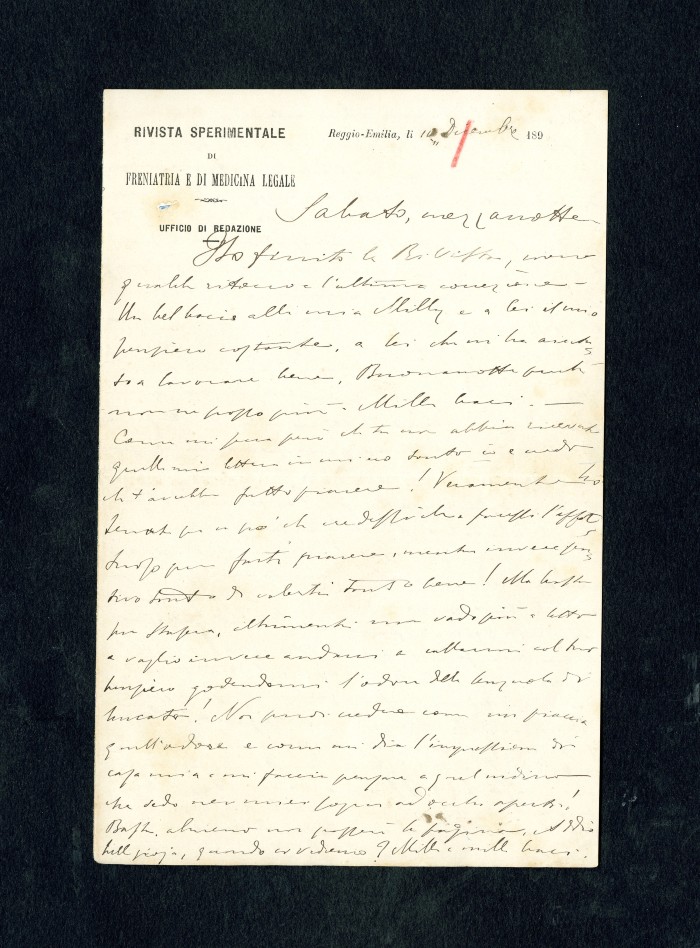 RIVISTA SPERIMENTALE
DI
FRENIATRIA E DI MEDICINA LEGALE
UFFICIO DI REDAZIONE
Reggio-Emilia, li 10 Dicembre 189
Sabato, mezzanotte
Ho finito la Rivista, meno
qualche ritorno e l'ultima correzione —
Un bel bacio alla mia Milly e a lei il mio
pensiero costante, a lei che mi ha
a lavorare bene. Buonanotte perché
non ne posso più. Mille baci. —
Come mi però che tu non abbia
quella mia lettera in cui io e credo
che t'avrebbe fatto piacere! Veramente ho
un po' che
per farti piacere, mentre invece
di volerti tanto bene! Ma basta
per stasera, altrimenti non vado più a letto
e voglio invece andarci e col tuo
pensiero godendomi l'odore della di
bucato! Non puoi credere come mi piaccia
quell'odore e come mi dia l'impressione di
casa mia e mi faccia pensare a quel nidino
che vedo nei miei sogni ad occhi aperti!
Basta, almeno non la pagina. Addio
bella gioja, quando ci vedremo? Mille e mille baci.